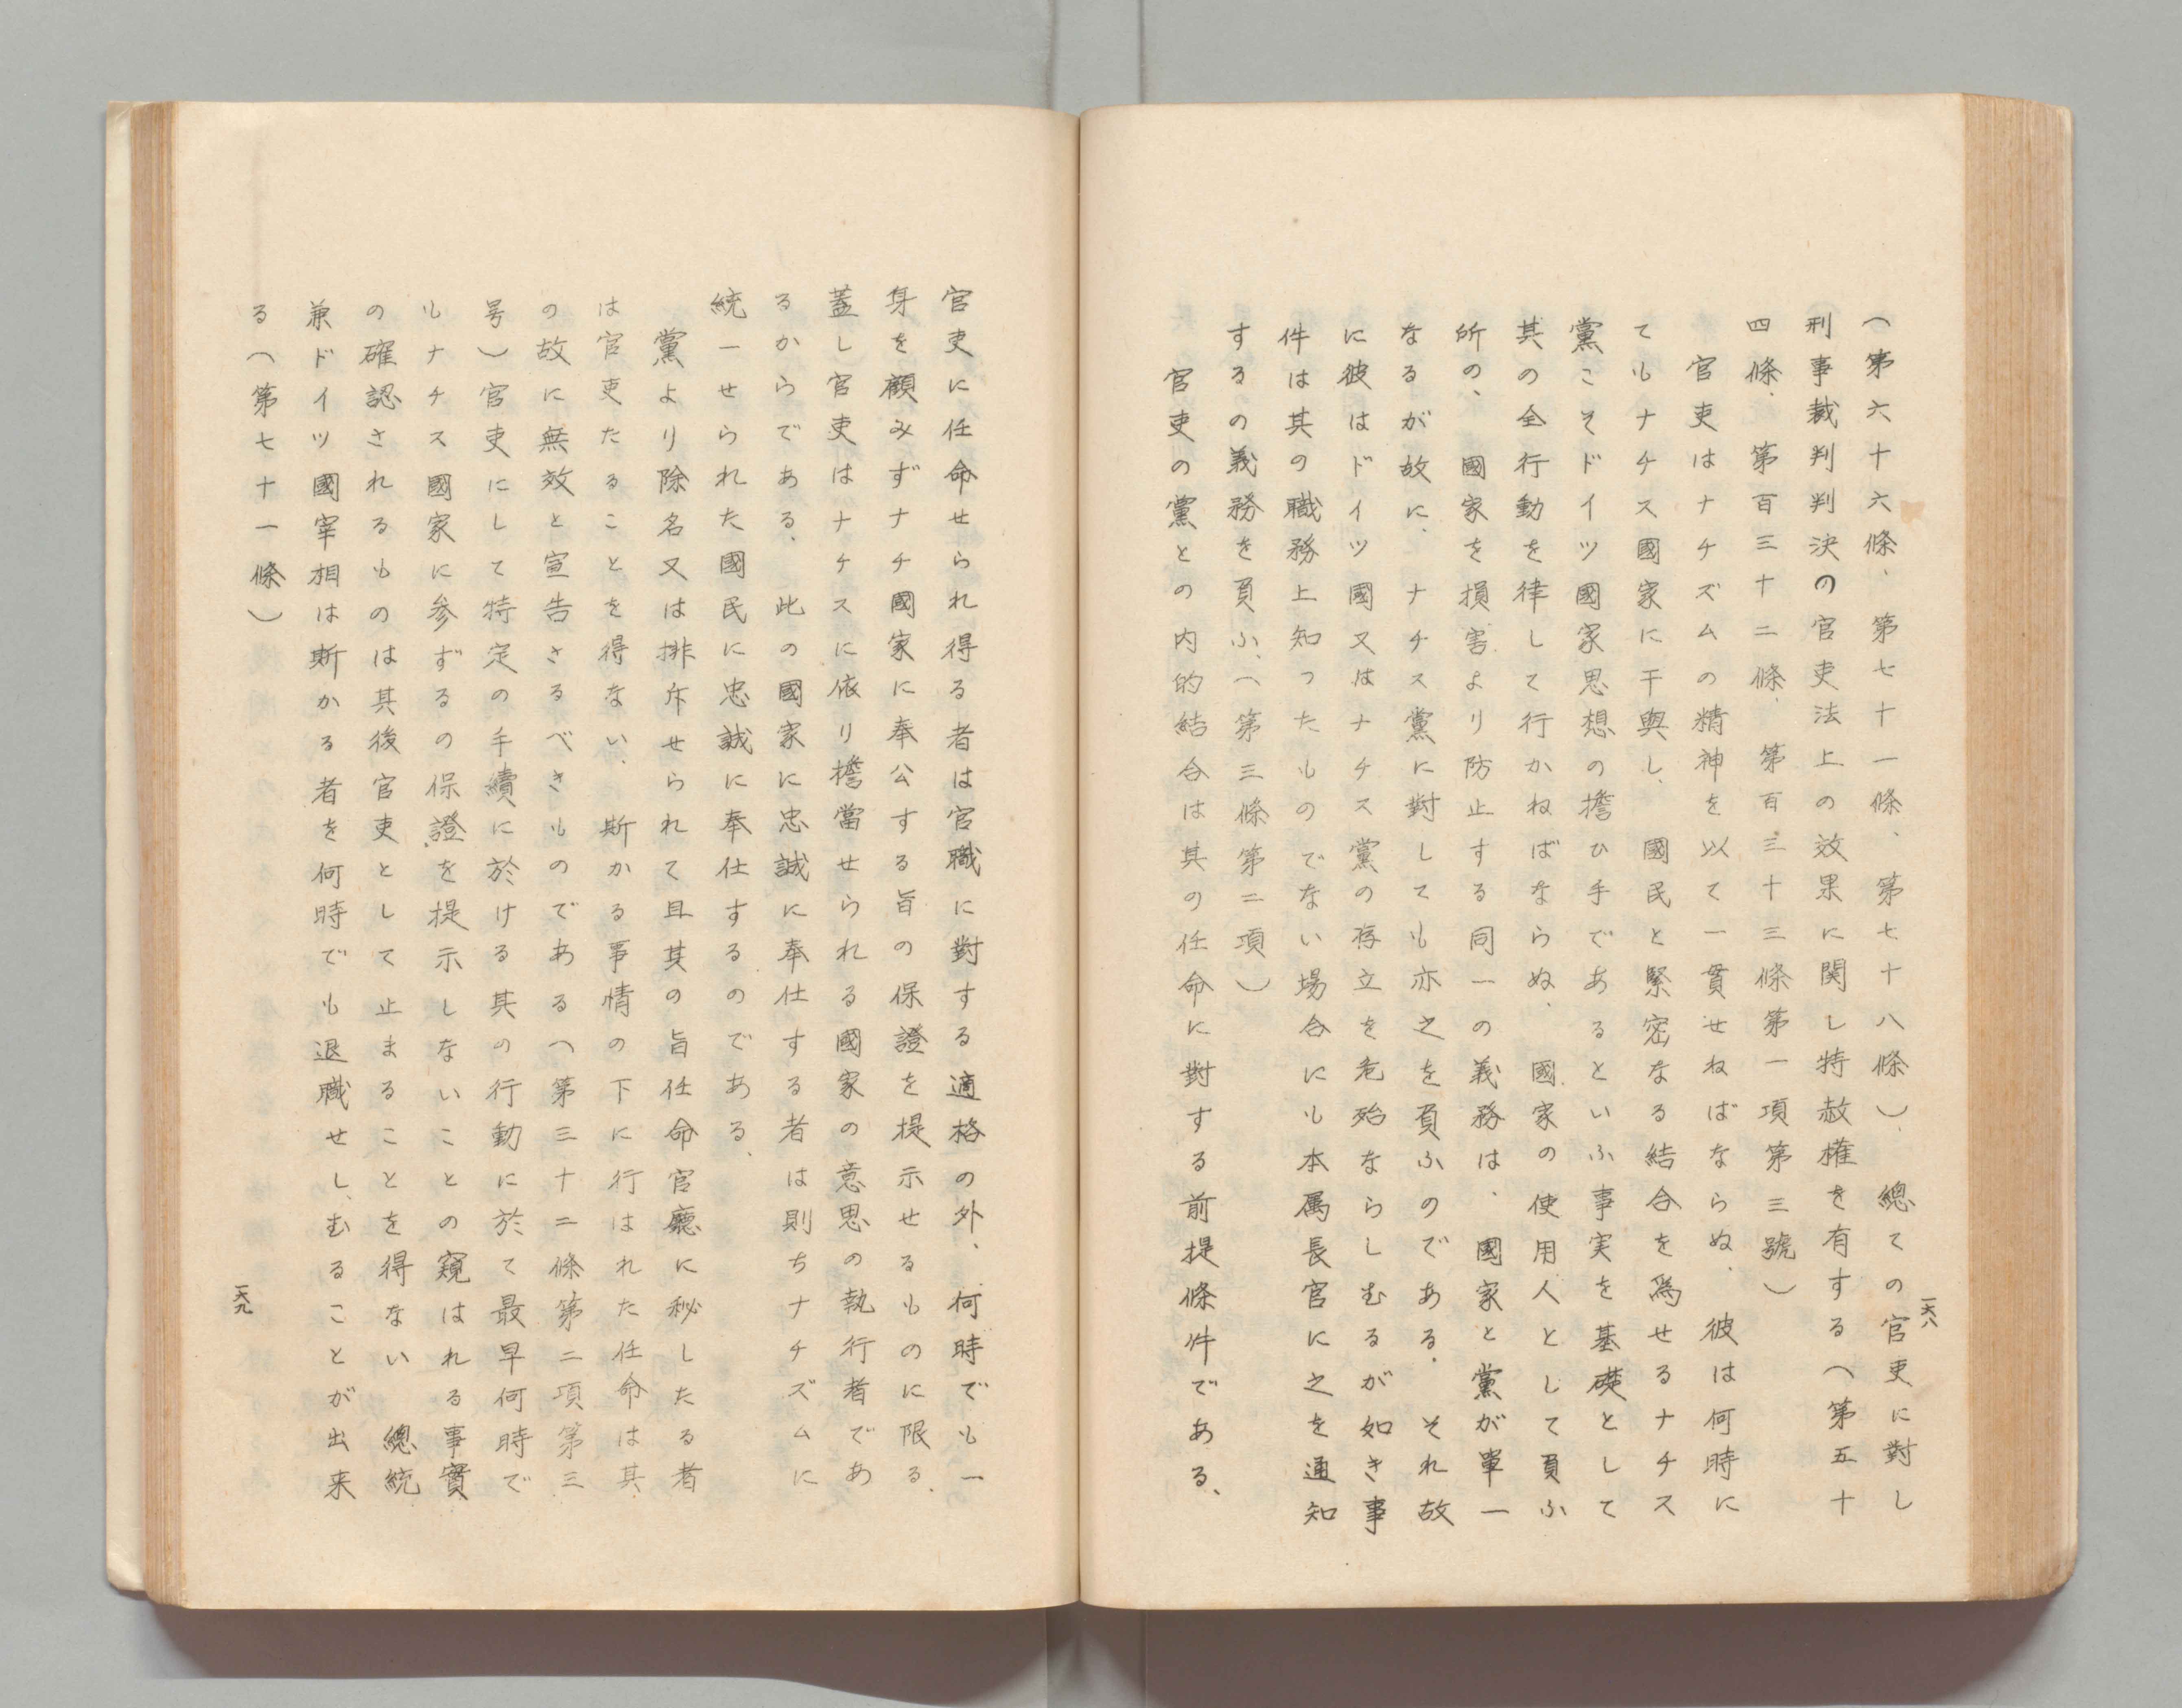 (第六十六條、第七十一條、第七十八條)、總ての官吏に對し
刑事裁判判決の官吏法上の效果に関し特赦權を有する(第五十
四條、第百三十二條、第百三十三條第一項第三號)
官吏はナチズムの精神を以て一貫せねばならぬ、彼は何時に
てもナチス國家に干與し、國民と緊密なる結合を爲せるナチス
黨こそドイツ國家思想の擔ひ手であるといふ事実を基礎として
其の全行動を律して行かねばならぬ、國家の使用人として負ふ
所の、國家を損害より防止する同一の義務は、國家と黨が單一
なるが故に、ナチス黨に對しても亦之を負ふのである。それ故
に彼はドイツ國又はナチス黨の存立を危殆ならしむるが如き事
件は其の職務上知つたものでない場合にも本属長官に之を通知
するの義務を負ふ、(第三條第二項)
官吏の黨との内的結合は其の任命に對する前提條件である、
一六八
官吏に任命せられ得る者は官職に對する適格の外、何時でも一
身を顧みずナチ國家に奉公する旨の保證を提示せるものに限る、
蓋し官吏はナチスに依り擔當せられる國家の意思の執行者であ
るからである、此の國家に忠誠に奉仕する者は則ちナチズムに
統一せられた國民に忠誠に奉仕するのである、
黨より除名又は排斥せられて且其の旨任命官廳に秘したる者
は官吏たることを得ない、斯かる事情の下に行はれた任命は其
の故に無效と宣告さるべきものである(第三十二條第二項第三
号)官吏にして特定の手續に於ける其の行動に於て最早何時で
もナチス國家に参ずるの保證を提示しないことの窺はれる事實
の確認されるものは其後官吏として止まることを得ない 總統
兼ドイツ國宰相は斯かる者を何時でも退職せしむることが出来
る(第七十一條)
一六九